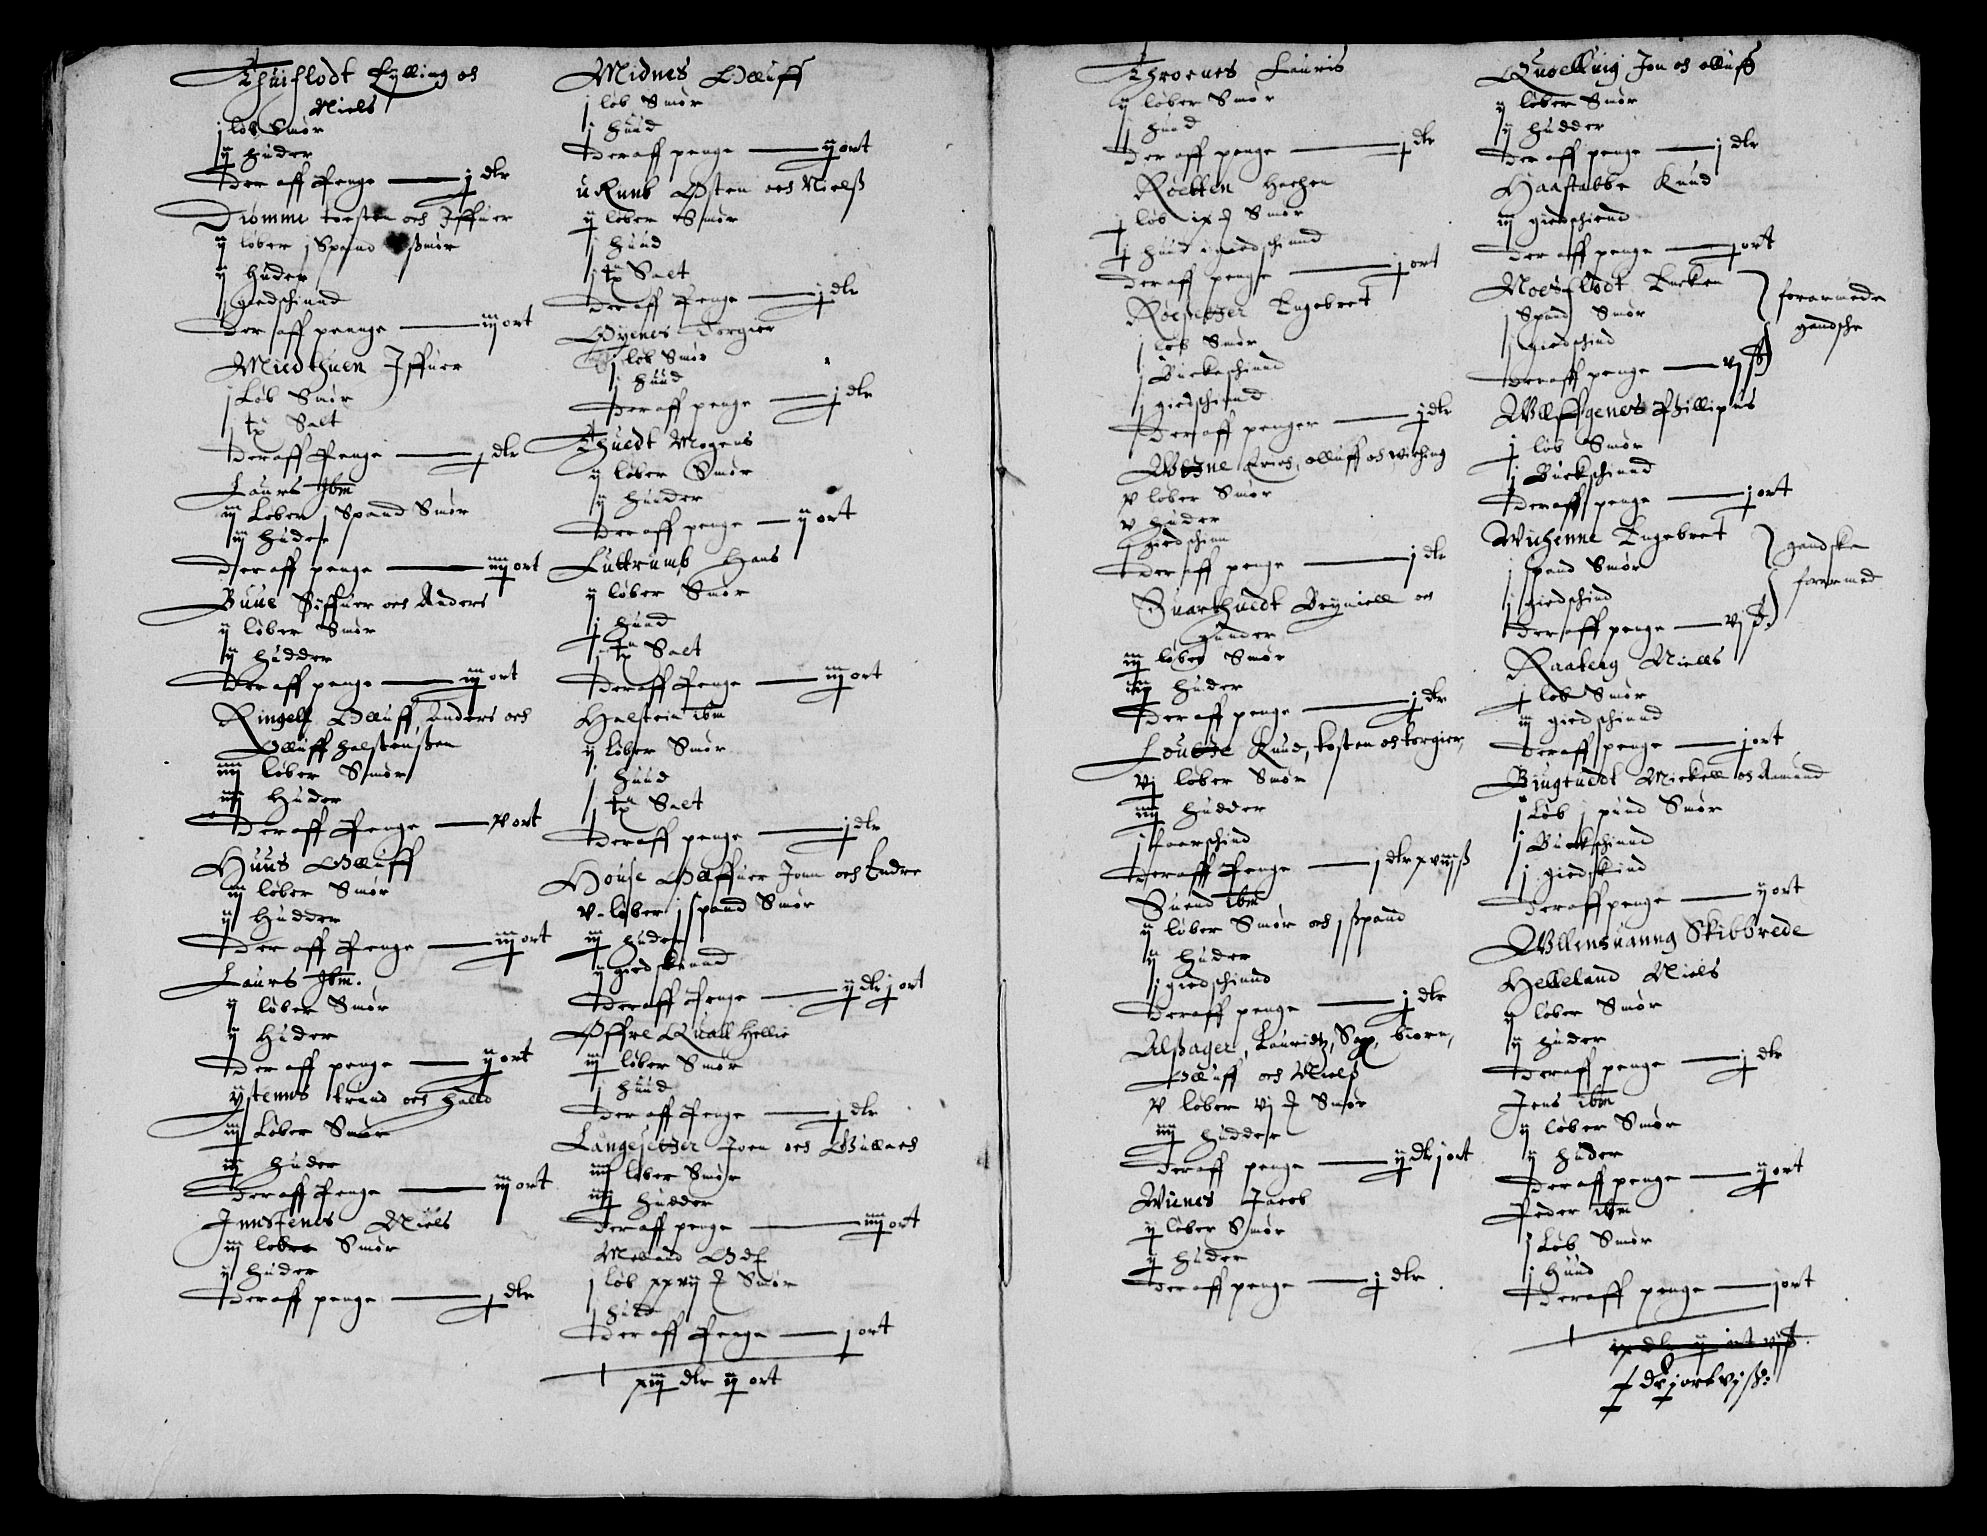 Thuisflodt Fylling och
Niels
j løb Smør
ij huder
Der aff penge — j dlr
Diømme torsten och Iffuer
ij løber j Spand Smør
ij huder
j giedschind
Der aff pennge — iij ort
Miedthuen Iffuer
j Løb Smør
j tø Salt
Der aff penge — j dlr
Laurs Ibm
iij Løber j Spand Smør
iij huder
Der aff penge — iiij ort
Buue Siffuer och Anders
ij løber Smør
ij hudder
Der aff penge — iij ort
Ringell Olluff, Anders och
Olluff halstenssen
iiij løber Smør
iiij huder
Der aff penge — v ort
Huus Olluff
iij løber Smør
ij hudder
Der aff penge — iij ort
Laurs Ibm.
ij løber Smør
ij huder
Der aff penge — ij ort
ystenns trund och
iij Løber Smør
iij huder
Der aff penge — iij ort
Innstenes Niels
iij løber Smør
ij huder
Der aff penge — j dlr
Midnes Olluff
j løb Smør
j huud
Der aff penge — ij ort
Østen och Nielss
ij løber Smør
j huud
j tø Salt
Der aff penge — j dlr
Øyenes Torgier
j løb Smør
j huud
Der aff penge — j dlr
Thuedt Mogens
ij løber Smør
ij huder
Der aff penge — ij ort
Luttrumb Hans
ij løber Smør
j huud
j tø Salt
Der aff penge — iij ort
Halstein ibm
ij løber Smør
j huud
j tø Salt
Der aff penge — j dlr
House Olluff Jonn och Endre
v løber j spand Smør
iij huder
ij giedskinnd
Der aff penge — ij dlr j ort
Øffre Quall Hellie
iij løber Smør
j huud
Der aff penge — j dlr
Langesetter Joen och
iiij løber Smør
iiij hudder
Der aff penge — iiij ort
j løb xxvij Smør
j hud
Der aff penge — j ort
xiij dlr ij ort
Throenes Lauris
ij løber Smør
j huud
Der aff penge — j dlr
j løb ix Smør
j huud j giedschinnd
Der aff penge — j ort
Engebret
j løb Smør
j Buckeschinnd
j giedschinnd
Der aff penger — j dlr
Erich, olluff och wiching
v løber Smør
v huder
j giedschinn
Der aff penge — j dlr
Suarthuedt Brynniell och
Gunder
iij løber Smør
iij huder
Der aff penge — j dlr
Knud, tosten och torgier,
vj løber Smør
iiij hudder
j faarschind
Der aff penge — j dlr xviij ß
Suend ibm
ij løber Smør och j spand
ij huder
j giedschinnd
Der aff penge — j dlr
Alsager, Lauridtz, biørn,
Olluff och Nielss
v løber vj Smør
iiij hudder
Der aff penge — ij dlr j ort
Wiines Jacob
ij løber Smør
ij huder
Der aff penge — j dlr
Quelluig Jon och olluff
ij løber Smør
ij hudder
Der aff penge — j dlr
Haastabbe Knud
iij giedschiend
Der aff penge — j ort
Moesflodt
j Spand Smør
j giedschind
Der aff penge — vj ß
forarmede
gandsche
Wlffgenes Phillipus
j løb Smør
j Buckschinnd
Der aff penge — j ort
Engebret
j spand Smør
j giedschind
Der aff penge — vj ß.
gandske
forarmed
Raaberg Niells
j løb Smør
iij giedschinnd
Der aff penge — j ort
Mickell och Aamund
j Løb j pund Smør
j Buckschinnd
j giedskind
Der aff penge — ij ort
Wllensuanng Skibbrede
Helleland Niels
ij løber Smør
ij huder
Der aff penge — j dlr
Jens ibm
ij løber Smør
ij huder
Der aff penge — ij ort
Peder ibm
j Løb Smør
j huud
Der aff penge — j ort
ix dlr ij ort vj ß
x dlr j ort vj ß: